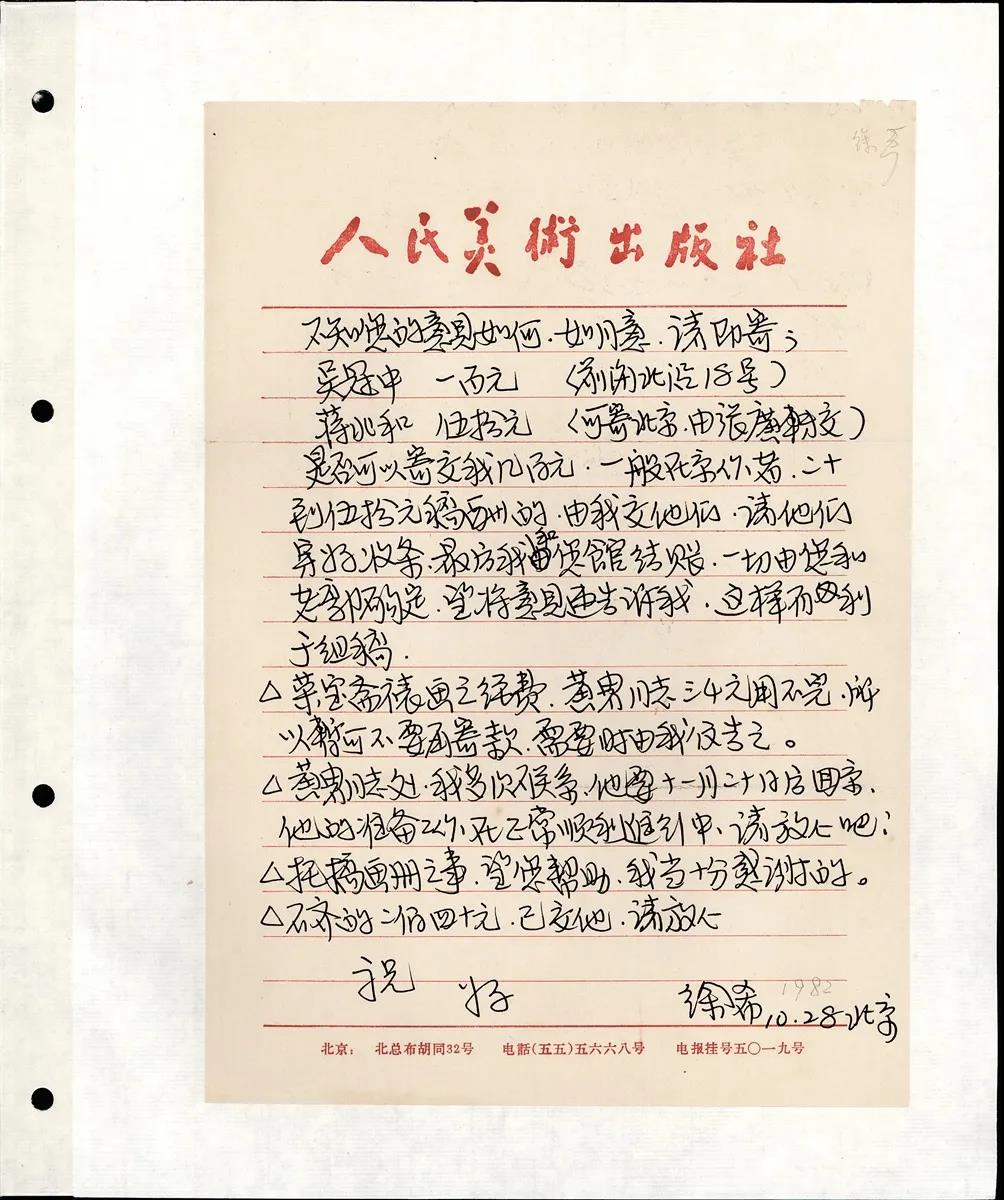 徐希
人民美術出版社
不知您的意见如何.如同意.请即寄;
吴冠中 一百元 (前海北沿18号)
蒋兆和 伍拾元 (可寄北京.由张广 转交)
是否可以寄交我几百元.一般在京作者.二十
到伍拾元稿酬的.由我交他们.请他们
写好收条.最后我和您館结账.一切由您和
党委 确定.望将意见速告诉我.这样而 利
于组稿.
△荣宝斋裱画之经费.黄胄同志三4元用不完.所
以暂可不要再寄款.需要时由我仅告之。
△黄胄同志处.我多次联系.他要十一月二十日后回京.
他的准备工作.在正常顺利進行中.请放心吧;
△托 画册之事.望您帮助.我当十分感谢的。
△石齐的二份四十元.已交他.请放心
祝
好
徐希 1982
10.28北京
北京: 北总布胡同32号 电話(五五)五六六八号 电报挂号五〇一九号